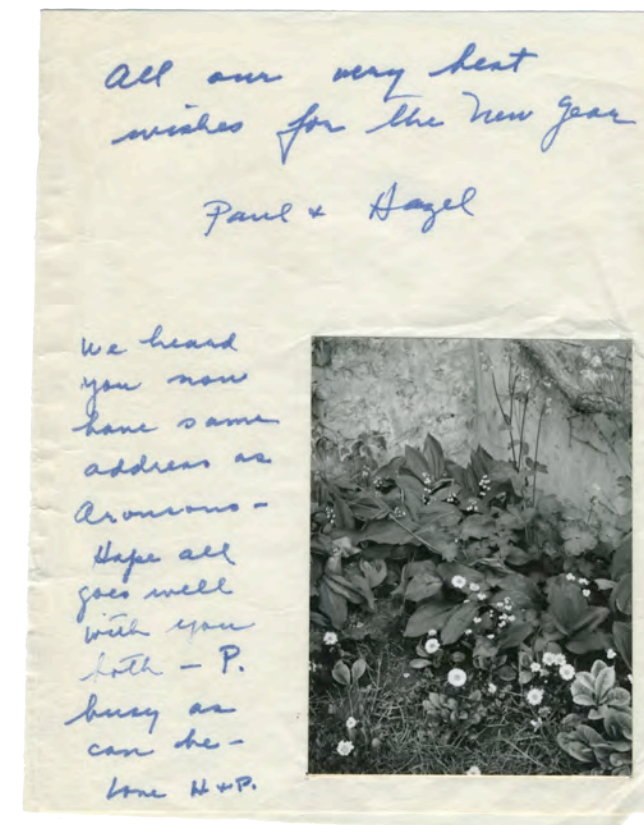 All our very best
wishes for the New Year
Paul + Hazel
We heard
you now
have same
address as
Aronsons -
Hope all
goes well
with you
both - P.
busy as
can be -
Love H + P.